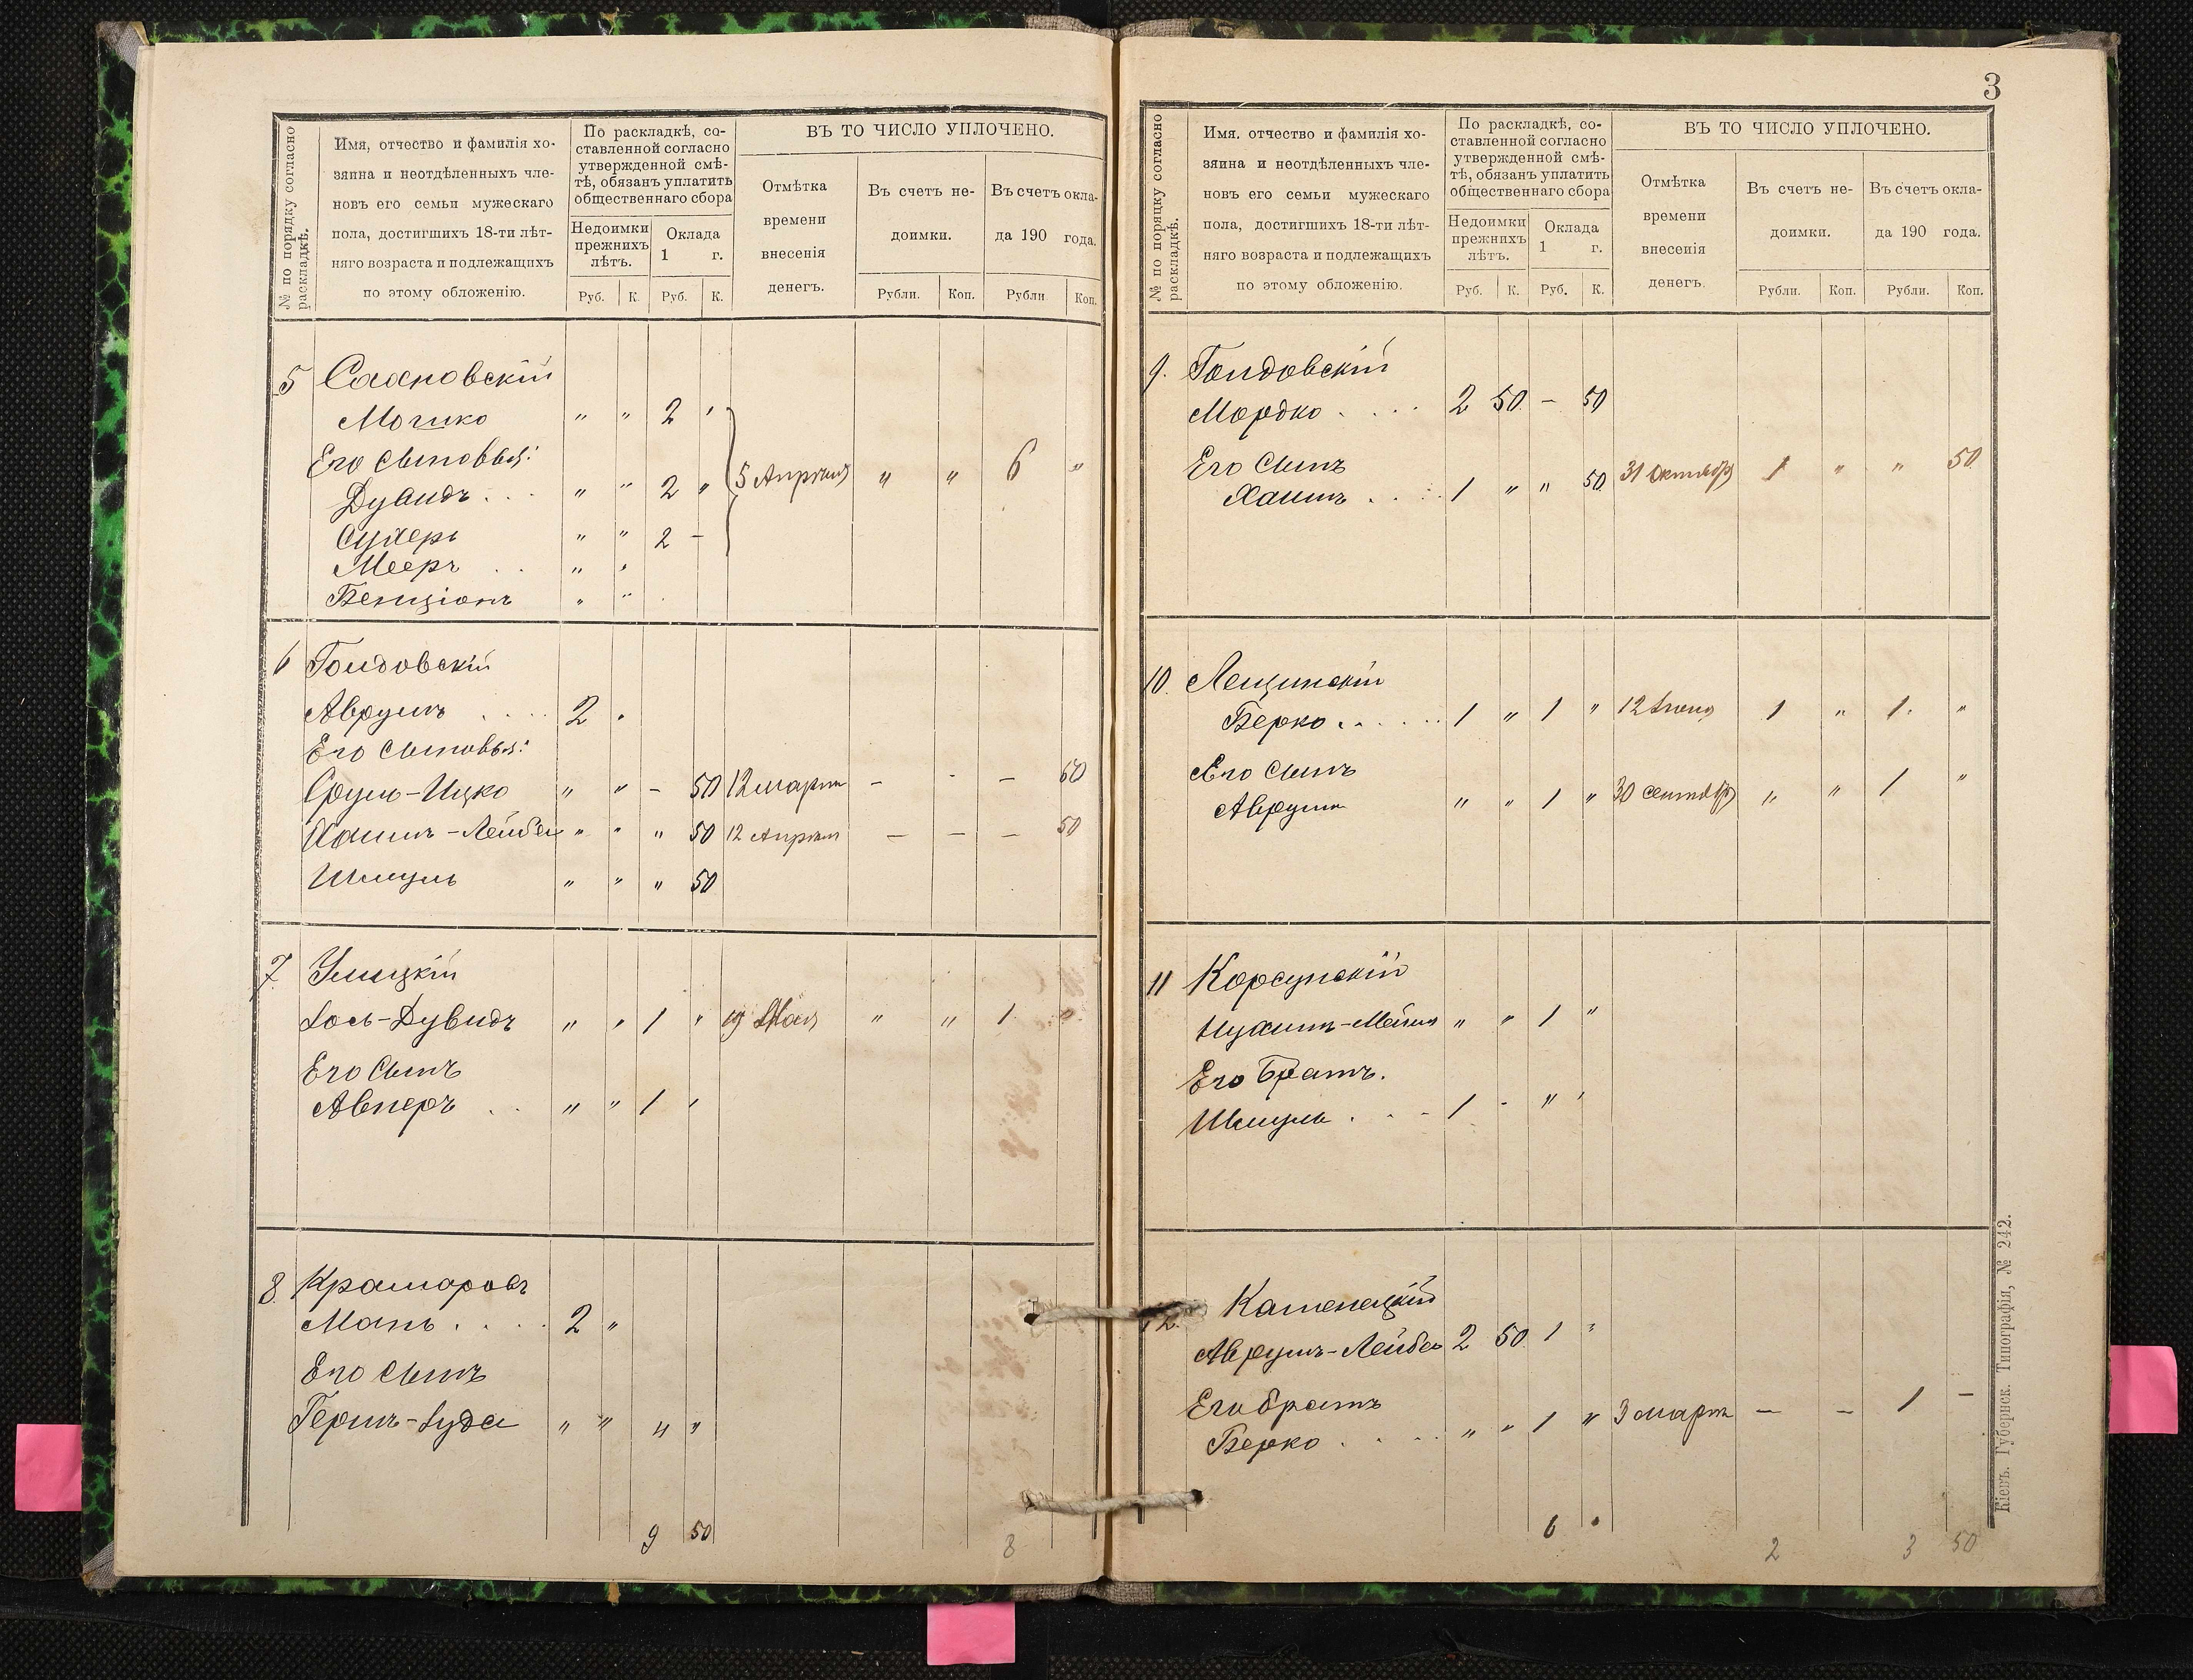 № по порядку согласно раскладкѣ.
Имя, отчество и фамилія хо-
зяина и неотдѣленныхъ чле-
новъ его семьи мужескаго
пола, достигшихъ 18-ти лѣт-
няго возраста и подлежащихъ
по этому обложенію.
По раскладкѣ, со-
ставленной согласно
утвержденной смѣ-
тѣ, обязанъ уплатить
общественнаго сбора
Недоимки
прежнихъ
лѣтъ.
Оклада
1 г.
Руб. К. Руб. К.
ВЪ ТО ЧИСЛО УПЛОЧЕНО.
Отмѣтка
времени
внесенія
денегъ.
Въ счетъ не-
доимки.
Въ счетъ окла-
да 190 года.
Рубли. Коп. Рубли Коп.
5
Мошко " " 2 "
Его Сыновья:
Дувидъ . . . " " 2 " 5 Апрѣля " " 6 "
Сухеръ " " 2 -
Мееръ . . " "
Бенціонъ " "
6
Аврумъ . . . . 2 "
Его Сыновья:
Сруль-Ицко " " - 50 12 марта - - - 50
Хаимъ-Лейба " " " 50 12 Апрѣля - - - 50
Шмуль " " " 50
7
Іось-Дувидъ " " 1 " 19 Мая " " 1 "
Его Сынъ
Авнеръ . . " " 1 "
8. Крамаровъ
Мань . . . . 2 "
Его Сынъ
Гершъ-Іуда " " 4 "
9 50 8
3
№ по порядку согласно раскладкѣ.
Имя. отчество и фамилія хо-
зяина и неотдѣленныхъ чле-
новъ его семьи мужескаго
пола, достигшихъ 18-ти лѣт-
няго возраста и подлежащихъ
по этому обложенію.
По раскладкѣ, со-
ставленной согласно
утвержденной смѣ-
тѣ, обязанъ уплатить
общественнаго сбора
Недоимки
прежнихъ
лѣтъ.
Оклада
1 г.
Руб. К. Руб. К.
ВЪ ТО ЧИСЛО УПЛОЧЕНО.
Отмѣтка
времени
внесенія
денегъ.
Въ счетъ не-
доимки.
Въ счетъ окла-
да 190 года.
Рубли. Коп. Рубли. Коп.
9.
Мордко . . . . 2 50 - 50
Его Сынъ
Хаимъ . . . . 1 " " 50 31 Октября 1 " " 50
10. Лещинскій
Берко . . . . . . 1 " 1 " 12 Іюня 1 " 1. "
Его Сынъ
Аврумъ " " 1 " 30 сентября " " 1 "
11 Корсунскій
" " 1 "
Его Братъ.
Шмуль . . . 1 - " "
12. Каменецкій
Аврумъ-Лейба 2 50 1 "
Его братъ
Берко . . . . " " 1 " 3 марта - - 1 -
6 " 2 3 50
Кіевъ. Губернск. Типографія, № 242.